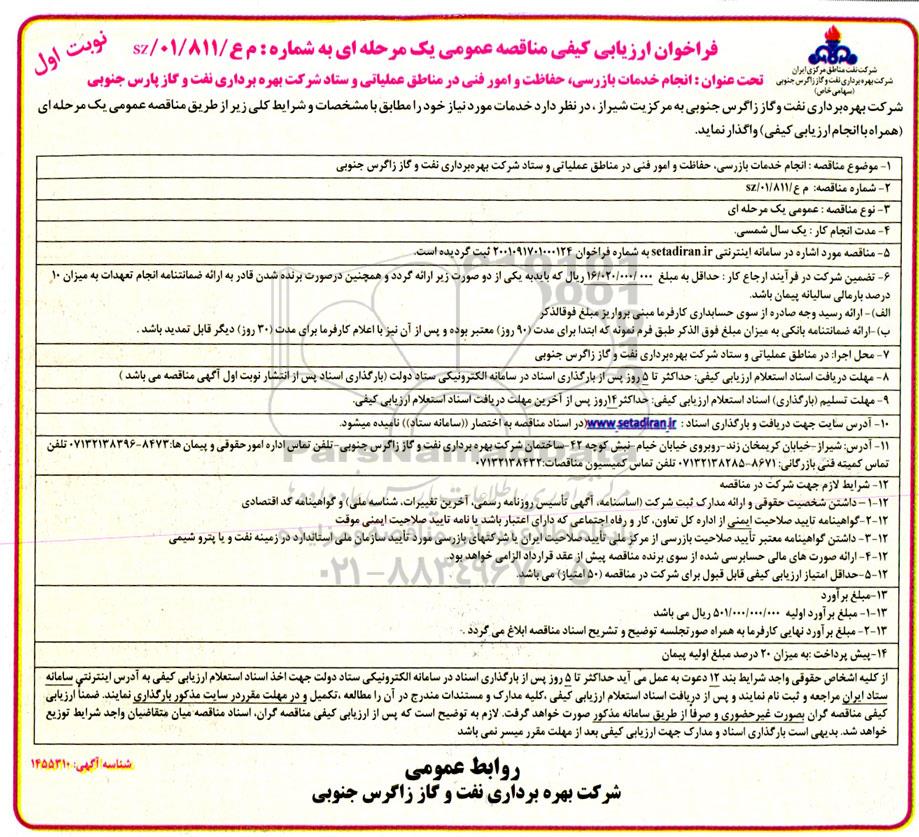 نوبت اول
فراخوان ارزیابی کیفی مناقصه عمومی یک مرحله ای به شماره : م ع/sz/۰۱/۸۱۱
شرکت نفت مناطق مرکزی ایران
شرکت بهره برداری نفت و گاز زاگرس جنوبی
(سهامی خاص)
تحت عنوان : انجام خدمات بازرسی، حفاظت و امور فنی در مناطق عملیاتی و ستاد شرکت بهره برداری نفت و گاز پارس جنوبی
شرکت بهره‌برداری نفت و گاز زاگرس جنوبی به مرکزیت شیراز ، در نظر دارد خدمات مورد نیاز خود را مطابق با مشخصات و شرایط کلی زیر از طریق مناقصه عمومی یک مرحله ای
(همراه با انجام ارزیابی کیفی) واگذار نماید.
۱- موضوع مناقصه : انجام خدمات بازرسی، حفاظت و امور فنی در مناطق عملیاتی و ستاد شرکت بهره‌برداری نفت و گاز زاگرس جنوبی
۲- شماره مناقصه: م ع/sz/۰۱/۸۱۱
۳- نوع مناقصه : عمومی یک مرحله ای
۴- مدت انجام کار : یک سال شمسی.
۵- مناقصه مورد اشاره در سامانه اینترنتی setadiran.ir به شماره فراخوان ۲۰۰۱۰۹۱۷۰۱۰۰۰۱۲۴ ثبت گردیده است.
۶- تضمین شرکت در فرآیند ارجاع کار : حداقل به مبلغ ۱۶/۰۲۰/۰۰۰/۰۰۰ ریال که باید به یکی از دو صورت زیر ارائه گردد و همچنین درصورت برنده شدن قادر به ارائه ضمانتنامه انجام تعهدات به میزان ۱۰
درصد بارمالی سالیانه پیمان باشد.
الف)- ارائه رسید وجه صادره از سوی حسابداری کارفرما مبنی بر واریز مبلغ فوق‌الذکر
ب)-ارائه ضمانتنامه بانکی به میزان مبلغ فوق الذکر طبق فرم نمونه که ابتدا برای مدت (۹۰ روز) معتبر بوده و پس از آن نیز با اعلام کارفرما برای مدت (۳۰ روز) دیگر قابل تمدید باشد .
۷- محل اجرا: در مناطق عملیاتی و ستاد شرکت بهره‌برداری نفت و گاز زاگرس جنوبی
۸- مهلت دریافت اسناد استعلام ارزیابی کیفی: حداکثر تا ۵ روز پس از بارگذاری اسناد در سامانه الکترونیکی ستاد دولت (بارگذاری اسناد پس از انتشار نوبت اول آگهی مناقصه می باشد )
۹- مهلت تسلیم (بارگذاری) اسناد استعلام ارزیابی کیفی: حداکثر ۱۴روز پس از آخرین مهلت دریافت اسناد استعلام ارزیابی کیفی.
۱۰- آدرس سایت جهت دریافت و بارگذاری اسناد : www.setadiran.ir(در اسناد مناقصه به اختصار ((سامانه ستاد)) نامیده میشود.
۱۱- آدرس: شیراز-خیابان کریمخان زند-روبروی خیابان خیام-نبش کوچه ۴۲-ساختمان شرکت بهره برداری نفت و گاز زاگرس جنوبی-تلفن تماس اداره امور حقوقی و پیمان ها:۸۴۷۳-۰۷۱۳۲۱۳۸۳۹۶ تلفن
تماس کمیته فنی بازرگانی: ۸۶۷۱-۰۷۱۳۲۱۳۸۲۸۵ تلفن تماس کمیسیون مناقصات:۰۷۱۳۲۱۳۸۴۳۲
۱۲- شرایط لازم جهت شرکت در مناقصه
۱-۱۲- داشتن شخصیت حقوقی و ارائه مدارک ثبت شرکت (اساسنامه، آگهی تأسیس روزنامه رسمی، آخرین تغییرات، شناسه ملی) و گواهینامه کد اقتصادی
۲-۱۲-گواهینامه تایید صلاحیت ایمنی از اداره کل تعاون، کار و رفاه اجتماعی که دارای اعتبار باشد یا نامه تایید صلاحیت ایمنی موقت
۳-۱۲- داشتن گواهینامه معتبر تأیید صلاحیت بازرسی از مرکز ملی تأیید صلاحیت ایران یا شرکتهای بازرسی مورد تأیید سازمان ملی استاندارد در زمینه نفت و یا پترو شیمی
۴-۱۲- ارائه صورت های مالی حسابرسی شده از سوی برنده مناقصه پیش از عقد قرارداد الزامی خواهد بود.
۵-۱۲-حداقل امتیاز ارزیابی کیفی قابل قبول برای شرکت در مناقصه (۵۰ امتیاز) می باشد.
۱۳-مبلغ برآورد
۱-۱۳- مبلغ برآورد اولیه ۵۰۱/۰۰۰/۰۰۰/۰۰۰ ریال می باشد
۲-۱۳- مبلغ برآورد نهایی کارفرما به همراه صورتجلسه توضیح و تشریح اسناد مناقصه ابلاغ می گردد .
۱۴-پیش پرداخت :به میزان ۲۰ درصد مبلغ اولیه پیمان
از کلیه اشخاص حقوقی واجد شرایط بند ۱۲ دعوت به عمل می آید حداکثر تا ۵ روز پس از بارگذاری اسناد در سامانه الکترونیکی ستاد دولت جهت اخذ اسناد استعلام ارزیابی کیفی به آدرس اینترنتی سامانه
ستاد ایران مراجعه و ثبت نام نمایند و پس از دریافت اسناد استعلام ارزیابی کیفی ،کلیه مدارک و مستندات مندرج در آن را مطالعه ،تکمیل و در مهلت مقرر در سایت مذکور بارگذاری نمایند. ضمناً ارزیابی
کیفی مناقصه گران بصورت غیرحضوری و صرفاً از طریق سامانه مذکور صورت خواهد گرفت. لازم به توضیح است که پس از ارزیابی کیفی مناقصه گران، اسناد مناقصه میان متقاضیان واجد شرایط توزیع
خواهد شد. بدیهی است بارگذاری اسناد و مدارک جهت ارزیابی کیفی بعد از مهلت مقرر میسر نمی باشد
شناسه آگهی: ۱۴۵۵۳۱۰
روابط عمومی
شرکت بهره برداری نفت و گاز زاگرس جنوبی
ParsNamadData
۰۲۱-۸۸۳۴۹۶۷۰-۵